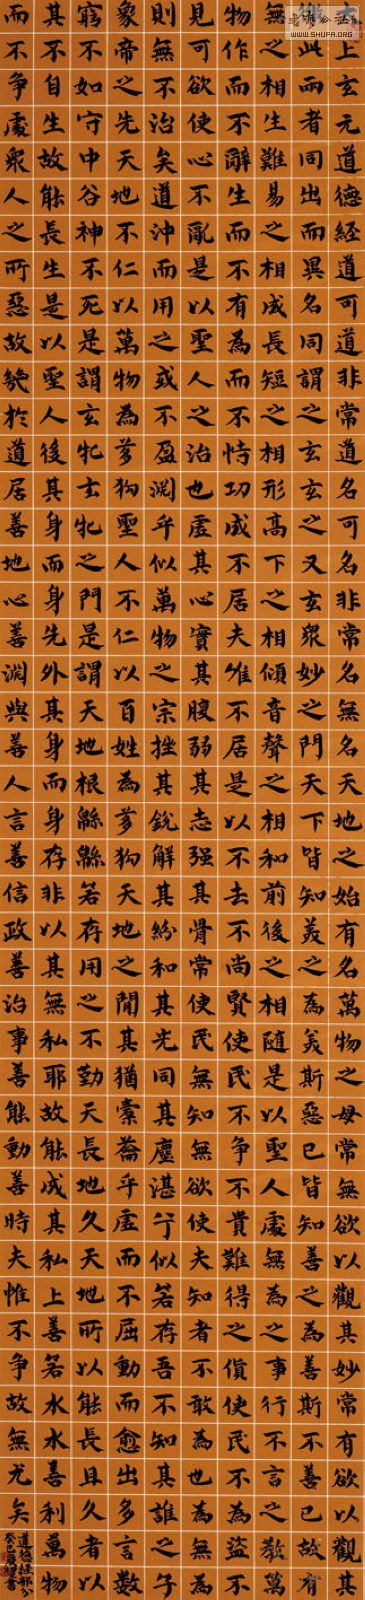 上玄元道德經道可道非常道名可名非常名無名天地之始有名萬物之母常無欲以觀其妙常有欲以觀其
此兩者同出而異名同謂之玄玄之又玄眾妙之門天下皆知美之為美斯惡已皆知善之為善斯不善已故有
無之相生難易之相成長短之相形高下之相傾音聲之相和前後之相隨是以聖人處無為之事行不言之教萬
物作而不辭生而不有為而不恃功成不居夫惟不居是以不去不尚賢使民不爭不貴難得之貨使民不為盜不
見可欲使心不亂是以聖人之治也虛其心實其腹弱其志强其骨常使民無知無欲使夫知者不敢為也為無為
則無不治矣道沖而用之或不盈淵乎似萬物之宗挫其銳解其紛和其光同其塵湛兮似若存吾不知其誰之子
象帝之先天地不仁以萬物為芻狗聖人不仁以百姓為芻狗天地之間其猶橐籥乎虛而不屈動而愈出多言數
窮不如守中谷神不死是謂玄牝玄牝之門是謂天地根綿綿若存用之不勤天長地久天地所以能長且久者以
其不自生故能長生是以聖人後其身而身先外其身而身存非以其無私耶故能成其私上善若水水善利萬物
而不爭處眾人之所惡故幾於道居善地心善淵與善人言善信政善治事善能動善時夫惟不爭故無尤矣
道德經部分
WWW.SHUFA.ORG